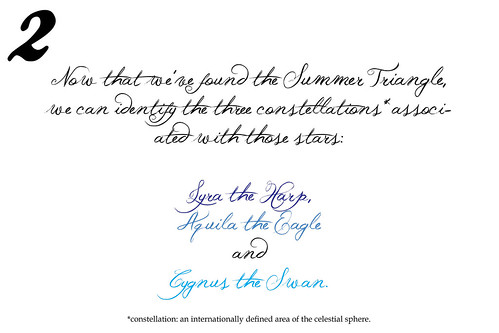 2
Now that we've found the Summer Triangle,
we can identify the three constellations* associ-
ated with those stars:
Lyra the Harp,
Aquila the Eagle
and
Cygnus the Swan.
*constellation: an internationally defined area of the celestial sphere.